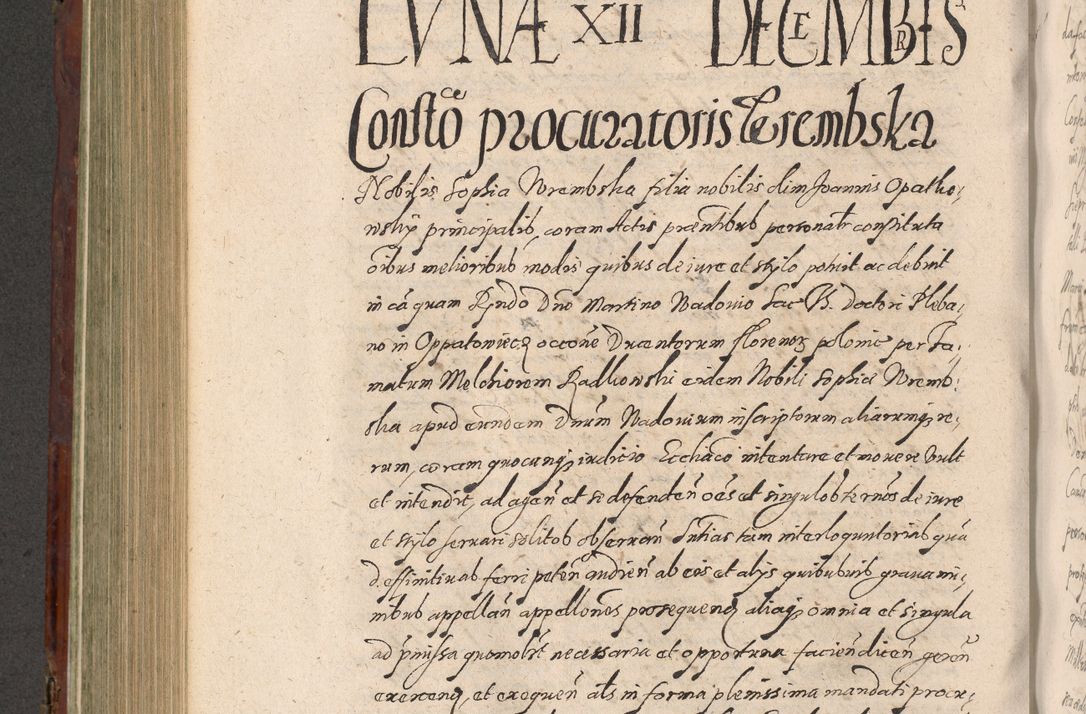 LVNÆ XII DECEMBRIS
Constõ procuratoris Wrembska
Nobilis Sophia Wrembska filia nobilis olim Joannis Opatko,
wsky principalis, coram Actis præntibus personalr constituta
oibus melioribus modis quibus de iure et stylo potuit ac debuit
in cã quam Rndo Dno Martino Wadovio Sac. Th. Doctori Pleba,
no in Oppatowiecz occõne Ducentorum florenoR polonic per fa,
matum Melchiorem Radkowski eidem Nobili Sophiæ Wremb,
ska apud eundem Dnum Wadovium inscriptorum aliarumqꝫ re,
rum, coram quocunqꝫ iudicio Eccliaco intentare et movere vult
et intendit, ad ageñ et se defendeñ oẽs et singulos terños de iure
et stylo servari solitos observañ Sntias tam interloquutorias quã
deffinitivas ferri peteñ audieñ ab eis et alys quibusvis gravami,
nibus appellañ appellones prosequend aliaqꝫ omnia et singula
ad pmissa quomolzt necessaria et opportuna facieñ diceñ gereñ
exercend, et exequeñ als in forma plenissima mandati procu,